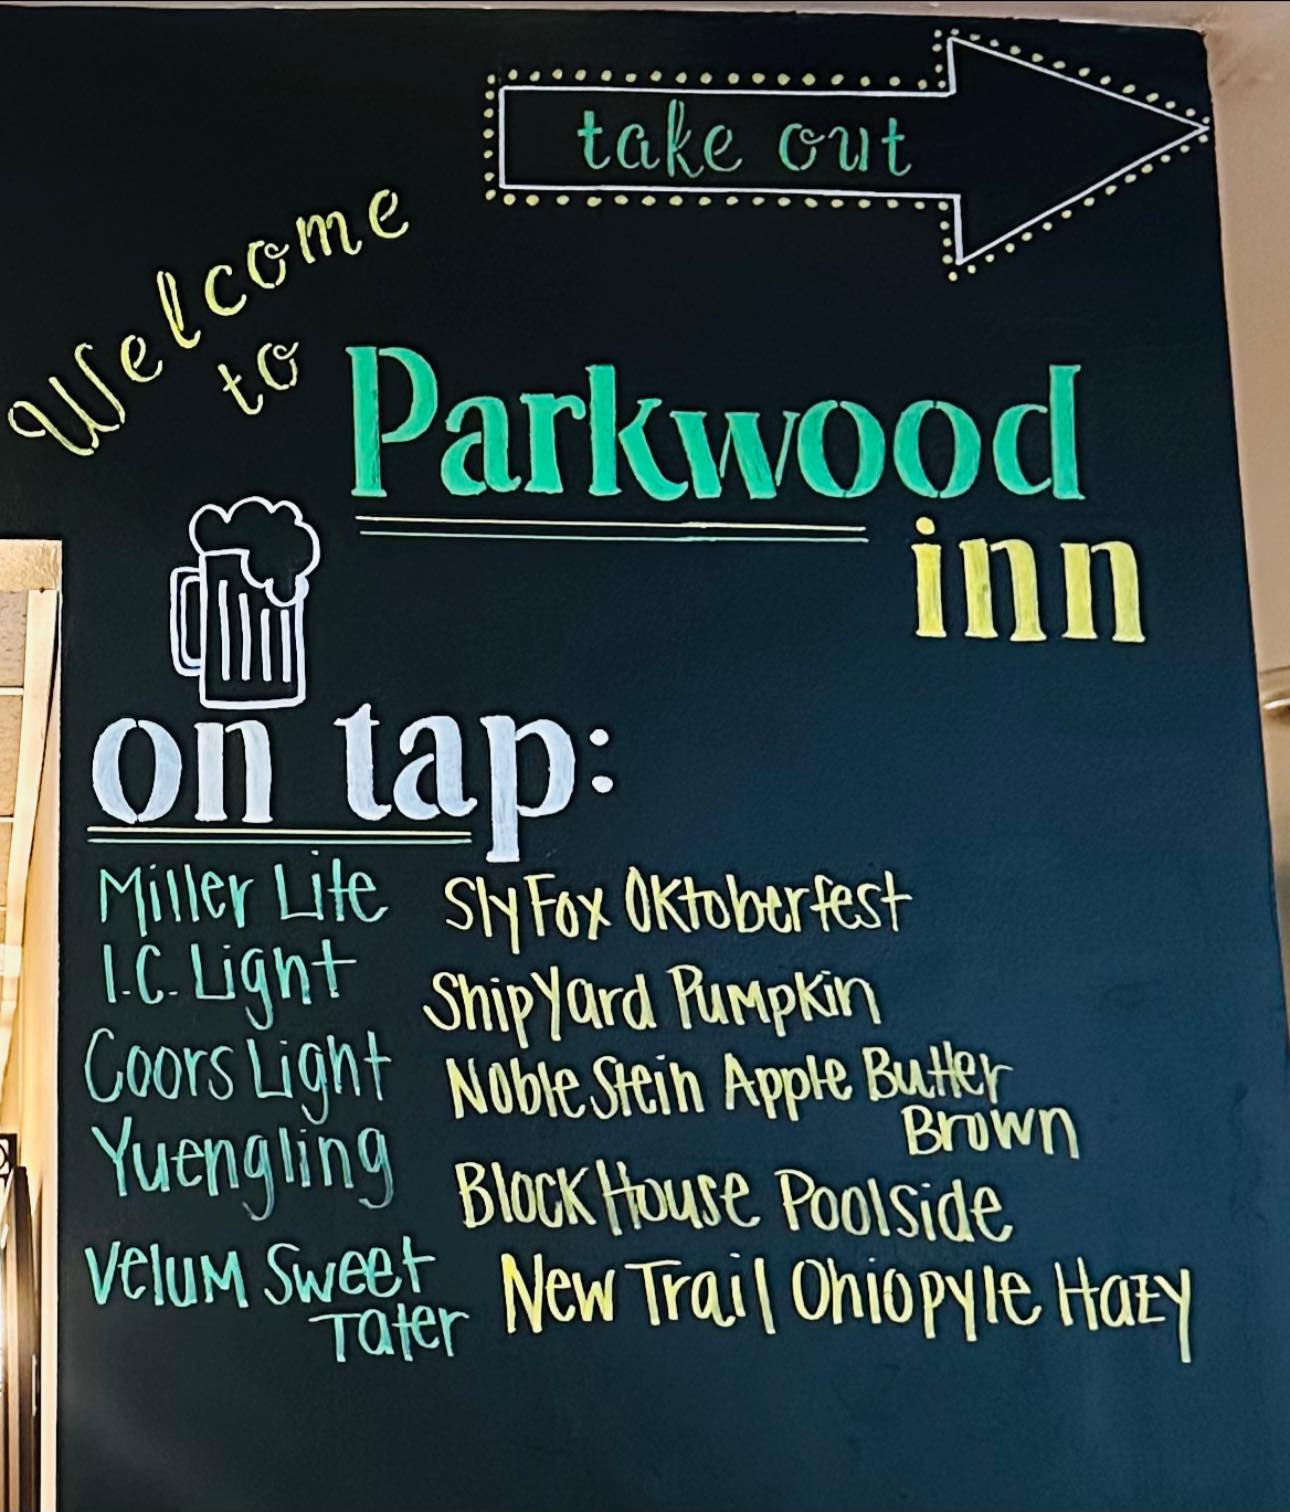 take out
Welcome
to
Parkwood
inn
on tap:
Miller Lite
I.C. Light
Coors Light
Yuengling
Velum Sweet
Tater
Sly Fox Oktoberfest
ShipYard Pumpkin
Noble Stein Apple Butter
Brown
Block House Poolside
New Trail Ohiopyle Hazy